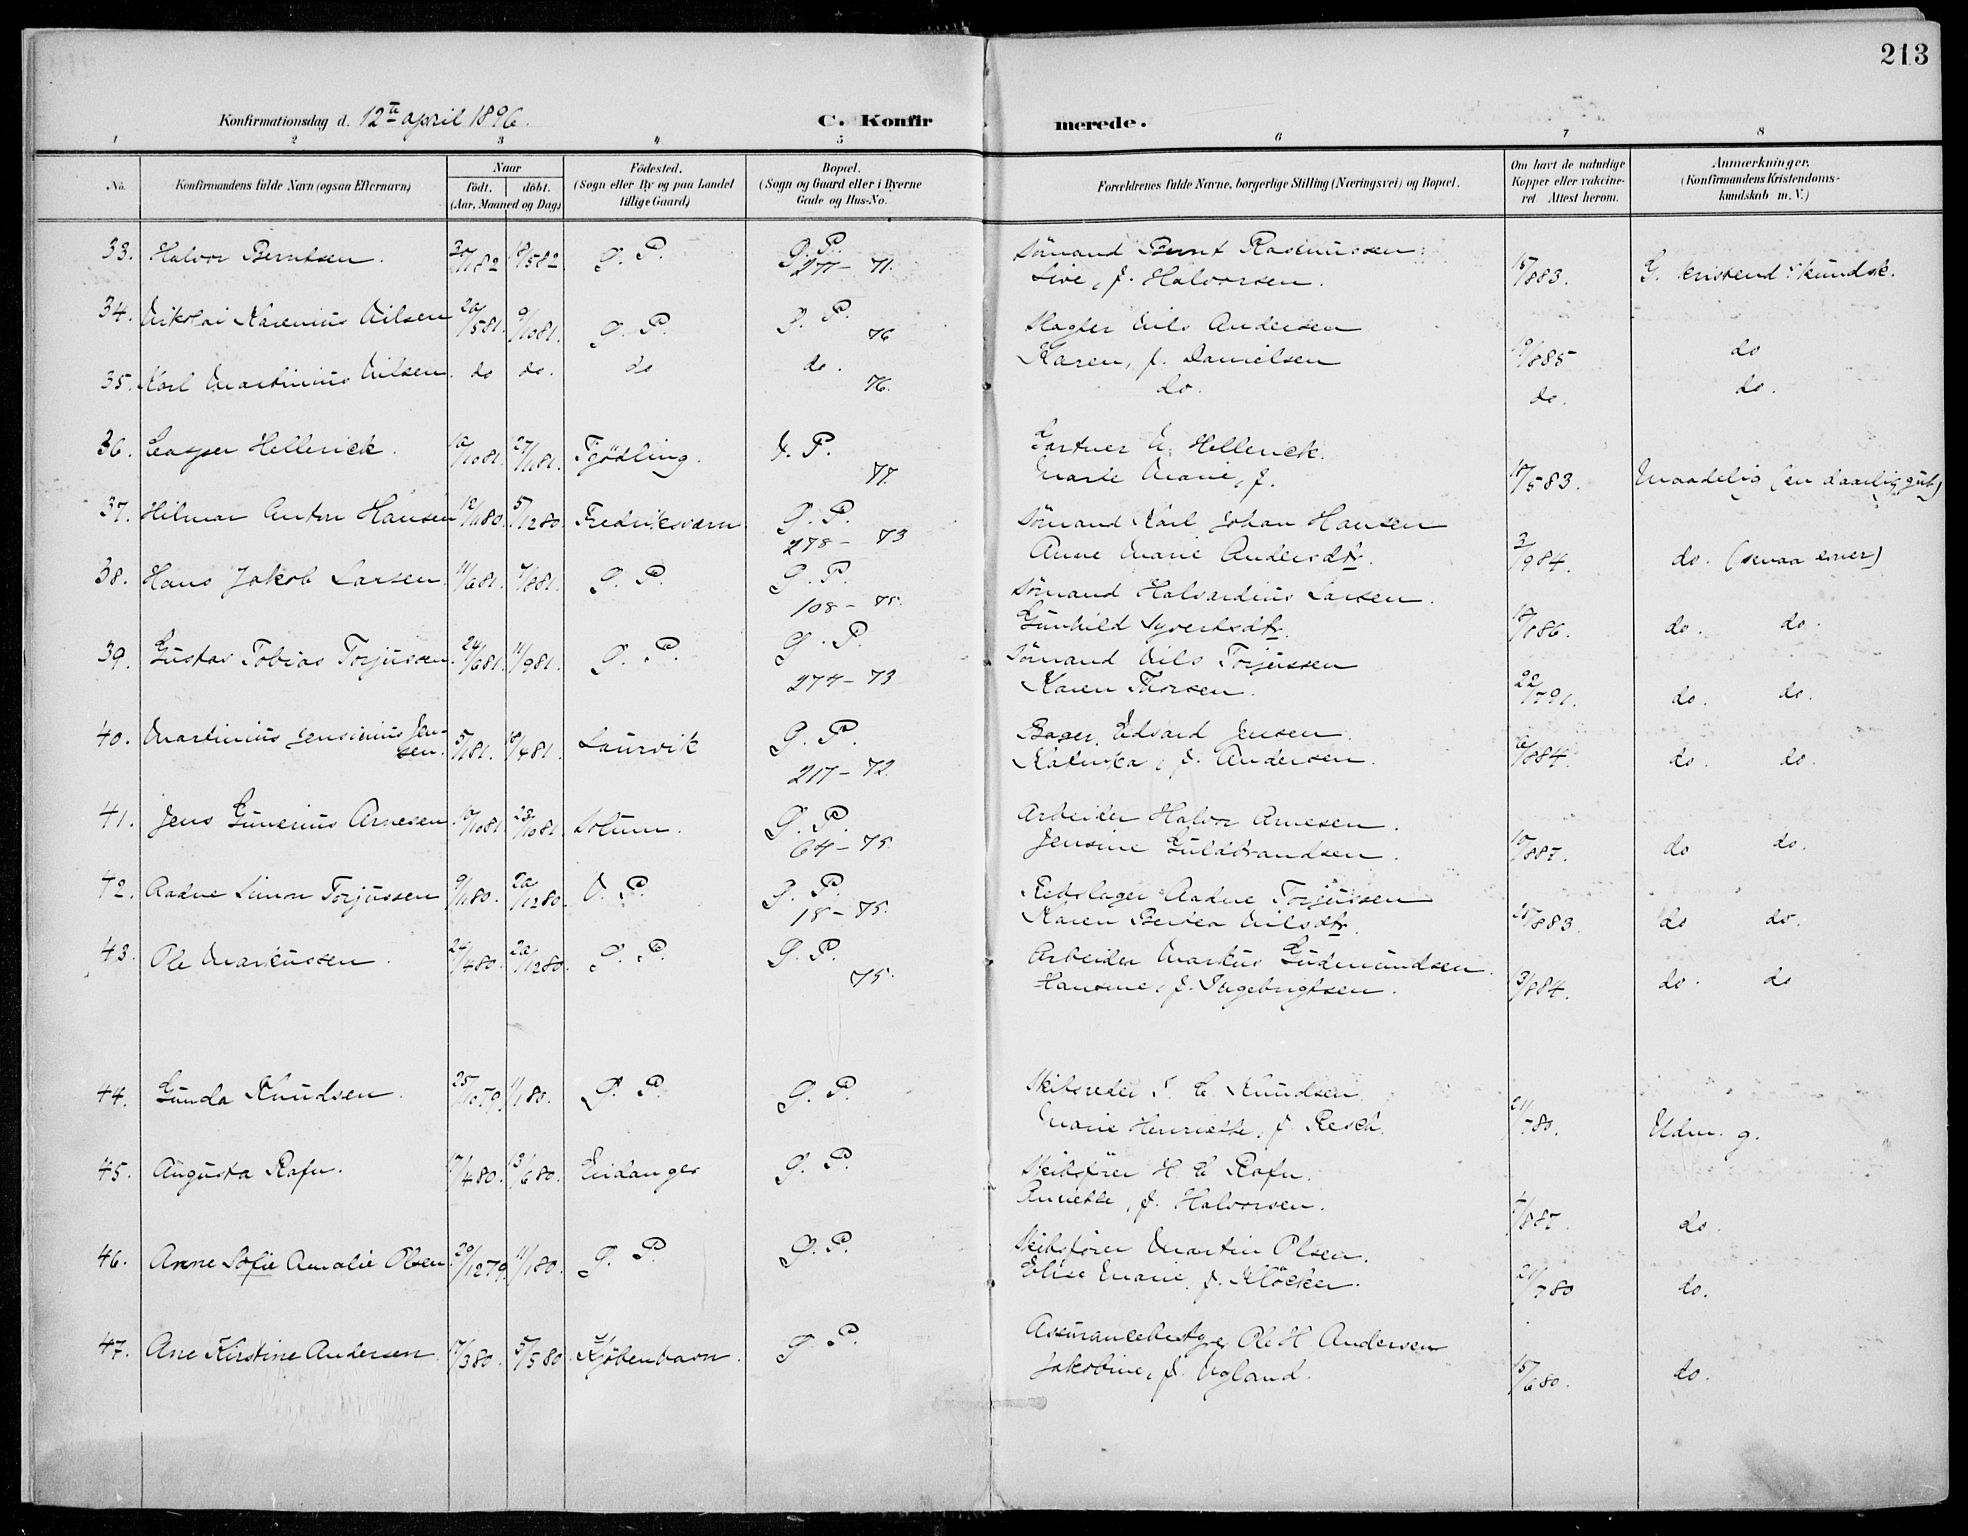 213
Konfirmationsdag d. 12te april 1896.
C. Konfirmerede.
1 2 3 4 5 6 7 8
No. Konfirmandens fulde Navn (ogsaa Efternavn) Naar født. døbt. (Aar, Maaned og Dag) Fødested. (Sogn eller By og paa Landet tillige Gaard) Bopæl. (Sogn og Gaard eller i Byerne Gade og Hus-No. Forældrenes fulde Navne, borgerlige Stilling (Næringsvei) og Bopæl. Om havt de naturlige Kopper eller vakcineret Attest herom. Anmærkninger. (Konfirmandens Kristendomskundskab m. V.)
33. Halvor Berntsen. 30/1 82 18/5 82 Ø. P. Ø. P. 277 - 71. Sömand Bernt Rasmussen.
Live, f. Halvorsen. 15/8 83. G. kristend.skundsk.
34. Nikolai Karenius Nilsen 20/5 81. 9/10 81. Ø. P. Ø. P. 76 Slagter Nils Andersen
Karen, f. Danielsen 19/8 85 do
35. Karl Martinius Nilsen. do do. do do. 76. do. do. do.
36. Casper Hellerick. 10/10 81. 27/11 81. Tjödling. V. P. 77. Gartner N. Hellerick.
Marte Marie, f. 18/5 83. Maadelig (en daarlig gut)
37. Hilmar Anton Hansen 12/11 80. 5/12 80. Fredriksværn Ø. P. 278 - 73 Sömand Karl Johan Hansen
Anne Marie Andersdtr. 3/9 84. do. (senaa evner)
38. Hans Jakob Larsen. 11/6 81. 7/8 81. Ø. P. Ø. P. 108 - 75. Sömand Halvardius Larsen.
Gunhild Syvertsdtr. 18/8 86. do. do.
39. Gustav Tobias Torjussen. 24/6 81. 11/9 81. Ø. P. Ø. P. 274 - 73 Sömand Nils Torjussen
Karen Thorsen. 22/7 91. do. do.
40. Martinius Jensinius Jensen. 5/1 81. 18/4 81. Laurvik Ø. P. 217 - 72. Bager Edvard Jensen.
Katinka, f. Andersen. 6/8 84. do. do.
41. Jens Gunerius Arnesen. 10/10 81. 23/10 81. Solum. Ø. P. 64 - 75. Arbeider Halvor Arnesen.
Jensine Guldbrandsen. 10/8 87. do do.
42. Aadne Simon Torjussen 9/11 80. 20/12 80. V. P. Ø. P. 18 - 75. Rebslager Aadne Torjussen
Karen Bertea Nilsdtr. 15/8 83. do do.
43. Ole Markussen. 24/4 80. 20/12 80. Ø. P. Ø. P. 75. Arbeider Markus Gudmundsen.
Hansine, f. Ingebrigtsen. 3/8 84. do. do
44. Gunda Knudsen. 25/10 79. 11/1 80. Ø. P. Ø. P. Skibsreder T. C. Knudsen.
Marie Henriette, f. Resch. 21/7 80. Udm. g.
45. Augusta Rafn. 17/4 80. 13/6 80. Eidanger Ø. P. Skibsfører H. C. Rafn.
Annette, f. Halvorsen. 4/8 87. do.
46. Anne Sofie Amalie Olsen 20/12 79. 11/1 80. Ø. P. Ø. P. Skibsfører Martin Olsen.
Elise Marie, f. Klöcker. 21/7 80 do.
47. Ane Kirstine Andersen. 17/3 80. 5/5 80. Kjöbenhavn. Ø. P. Assurancebestyr Ole H Andersen
Jakobine, f. Ugland. 15/6 80. do.